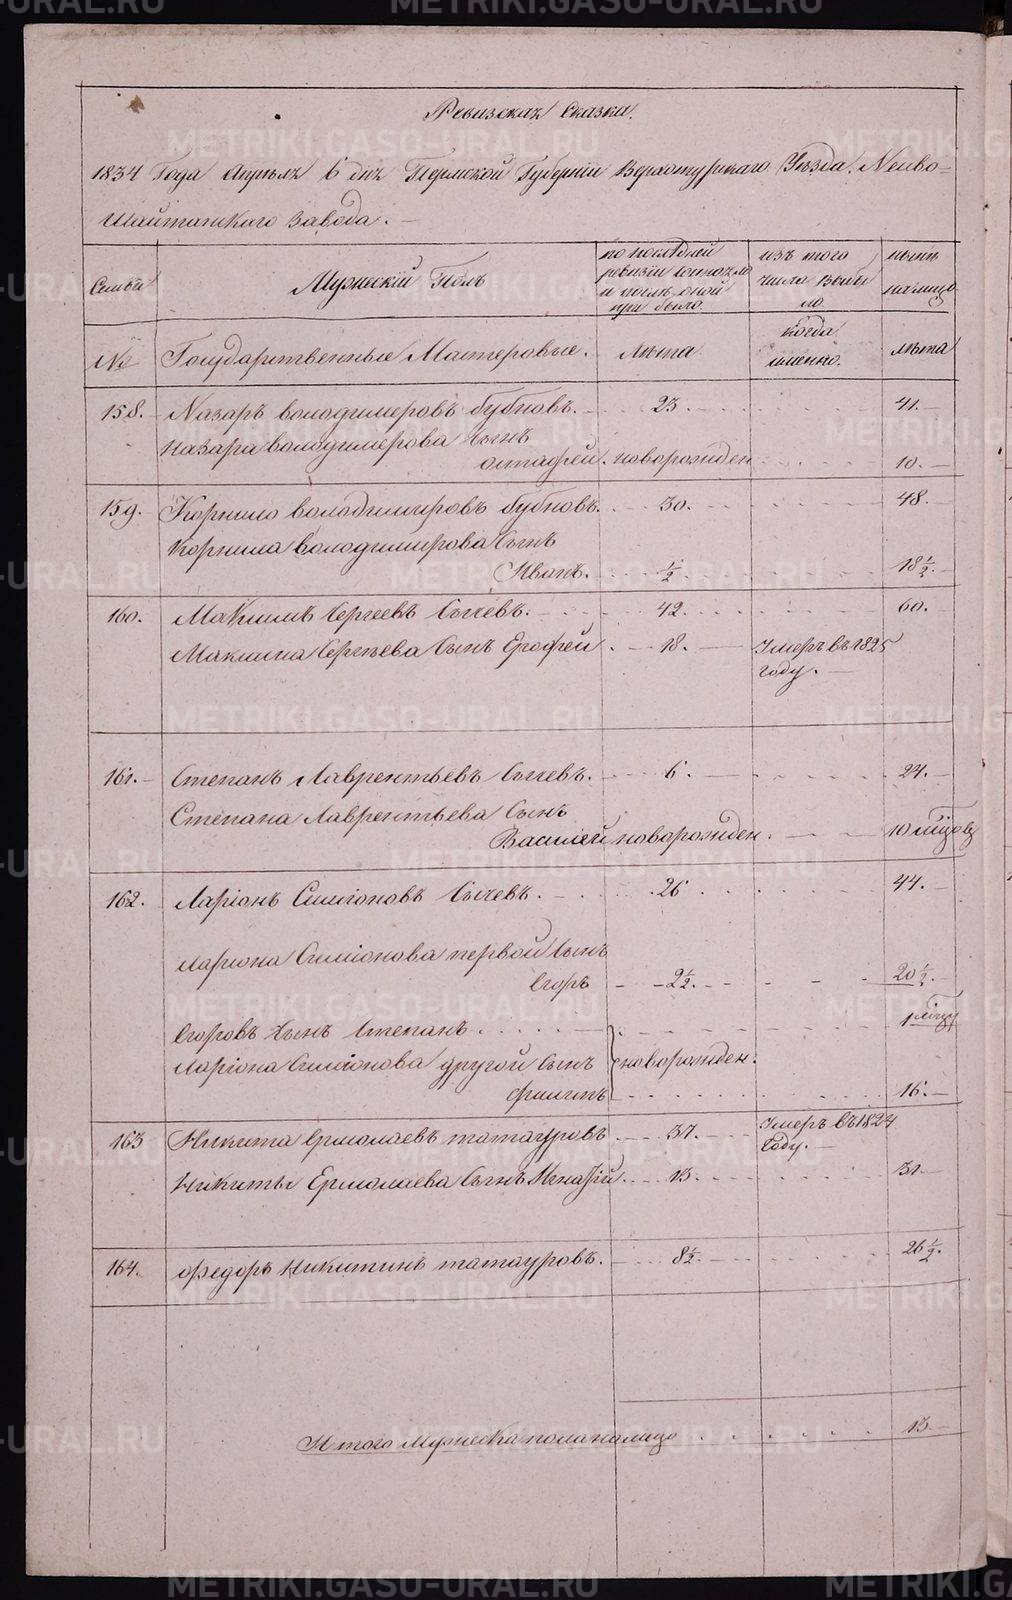 METRIKI.GASO-URAL.RU
Ревизская Сказка.
1834 Года Апрѣля 6 дня Пермской Губерніи Верхотурскаго Уѣзда. Нейво-
Шайтанскаго Завода. —
Семьи Мужескій Полъ по послѣдней ревизіи состояло и послѣ оной прибыло. изъ того числа выбыло. нынѣ на лицо
№ Государственные Мастеровые. лѣта когда именно. лѣта
158. Назаръ володимеровъ бубновъ. 23. 41.
Назара володимерова сынъ
астафей. новорожден 10.
159. Корнило володимировъ бубновъ. 30. 48.
Корнила володимирова Сынъ
Иванъ. ½ 18 ½.
160. Максимъ Сергеевъ Сычевъ. 42. 60.
Максима Сергѣева Сынъ Ерофей 18. Умеръ въ 1825
году.
161. Степанъ Лаврентьевъ Сычевъ. 6. 24.
Степана Лаврентьева Сынъ
Василей новорожден. 10 мѣсяцовъ
162. Ларіонъ Симіоновъ Сычевъ. 26 44.
Лариона Симіонова первой Сынъ
Егоръ 2½. 20 ½.
Егоровъ Сынъ Степанъ 1 мѣсяцу
Ларіона Симіонова другой Сынъ новорожден.
филипъ 16.
163 Никита ермолаевъ татауровъ 37. Умеръ въ 1824
Году.
Никиты Ермолаева Сынъ Игнатій. 13. 31.
164. Федоръ Никитинъ татауровъ. 8½. 26 ½.
Итого Мужеска пола налицо 13